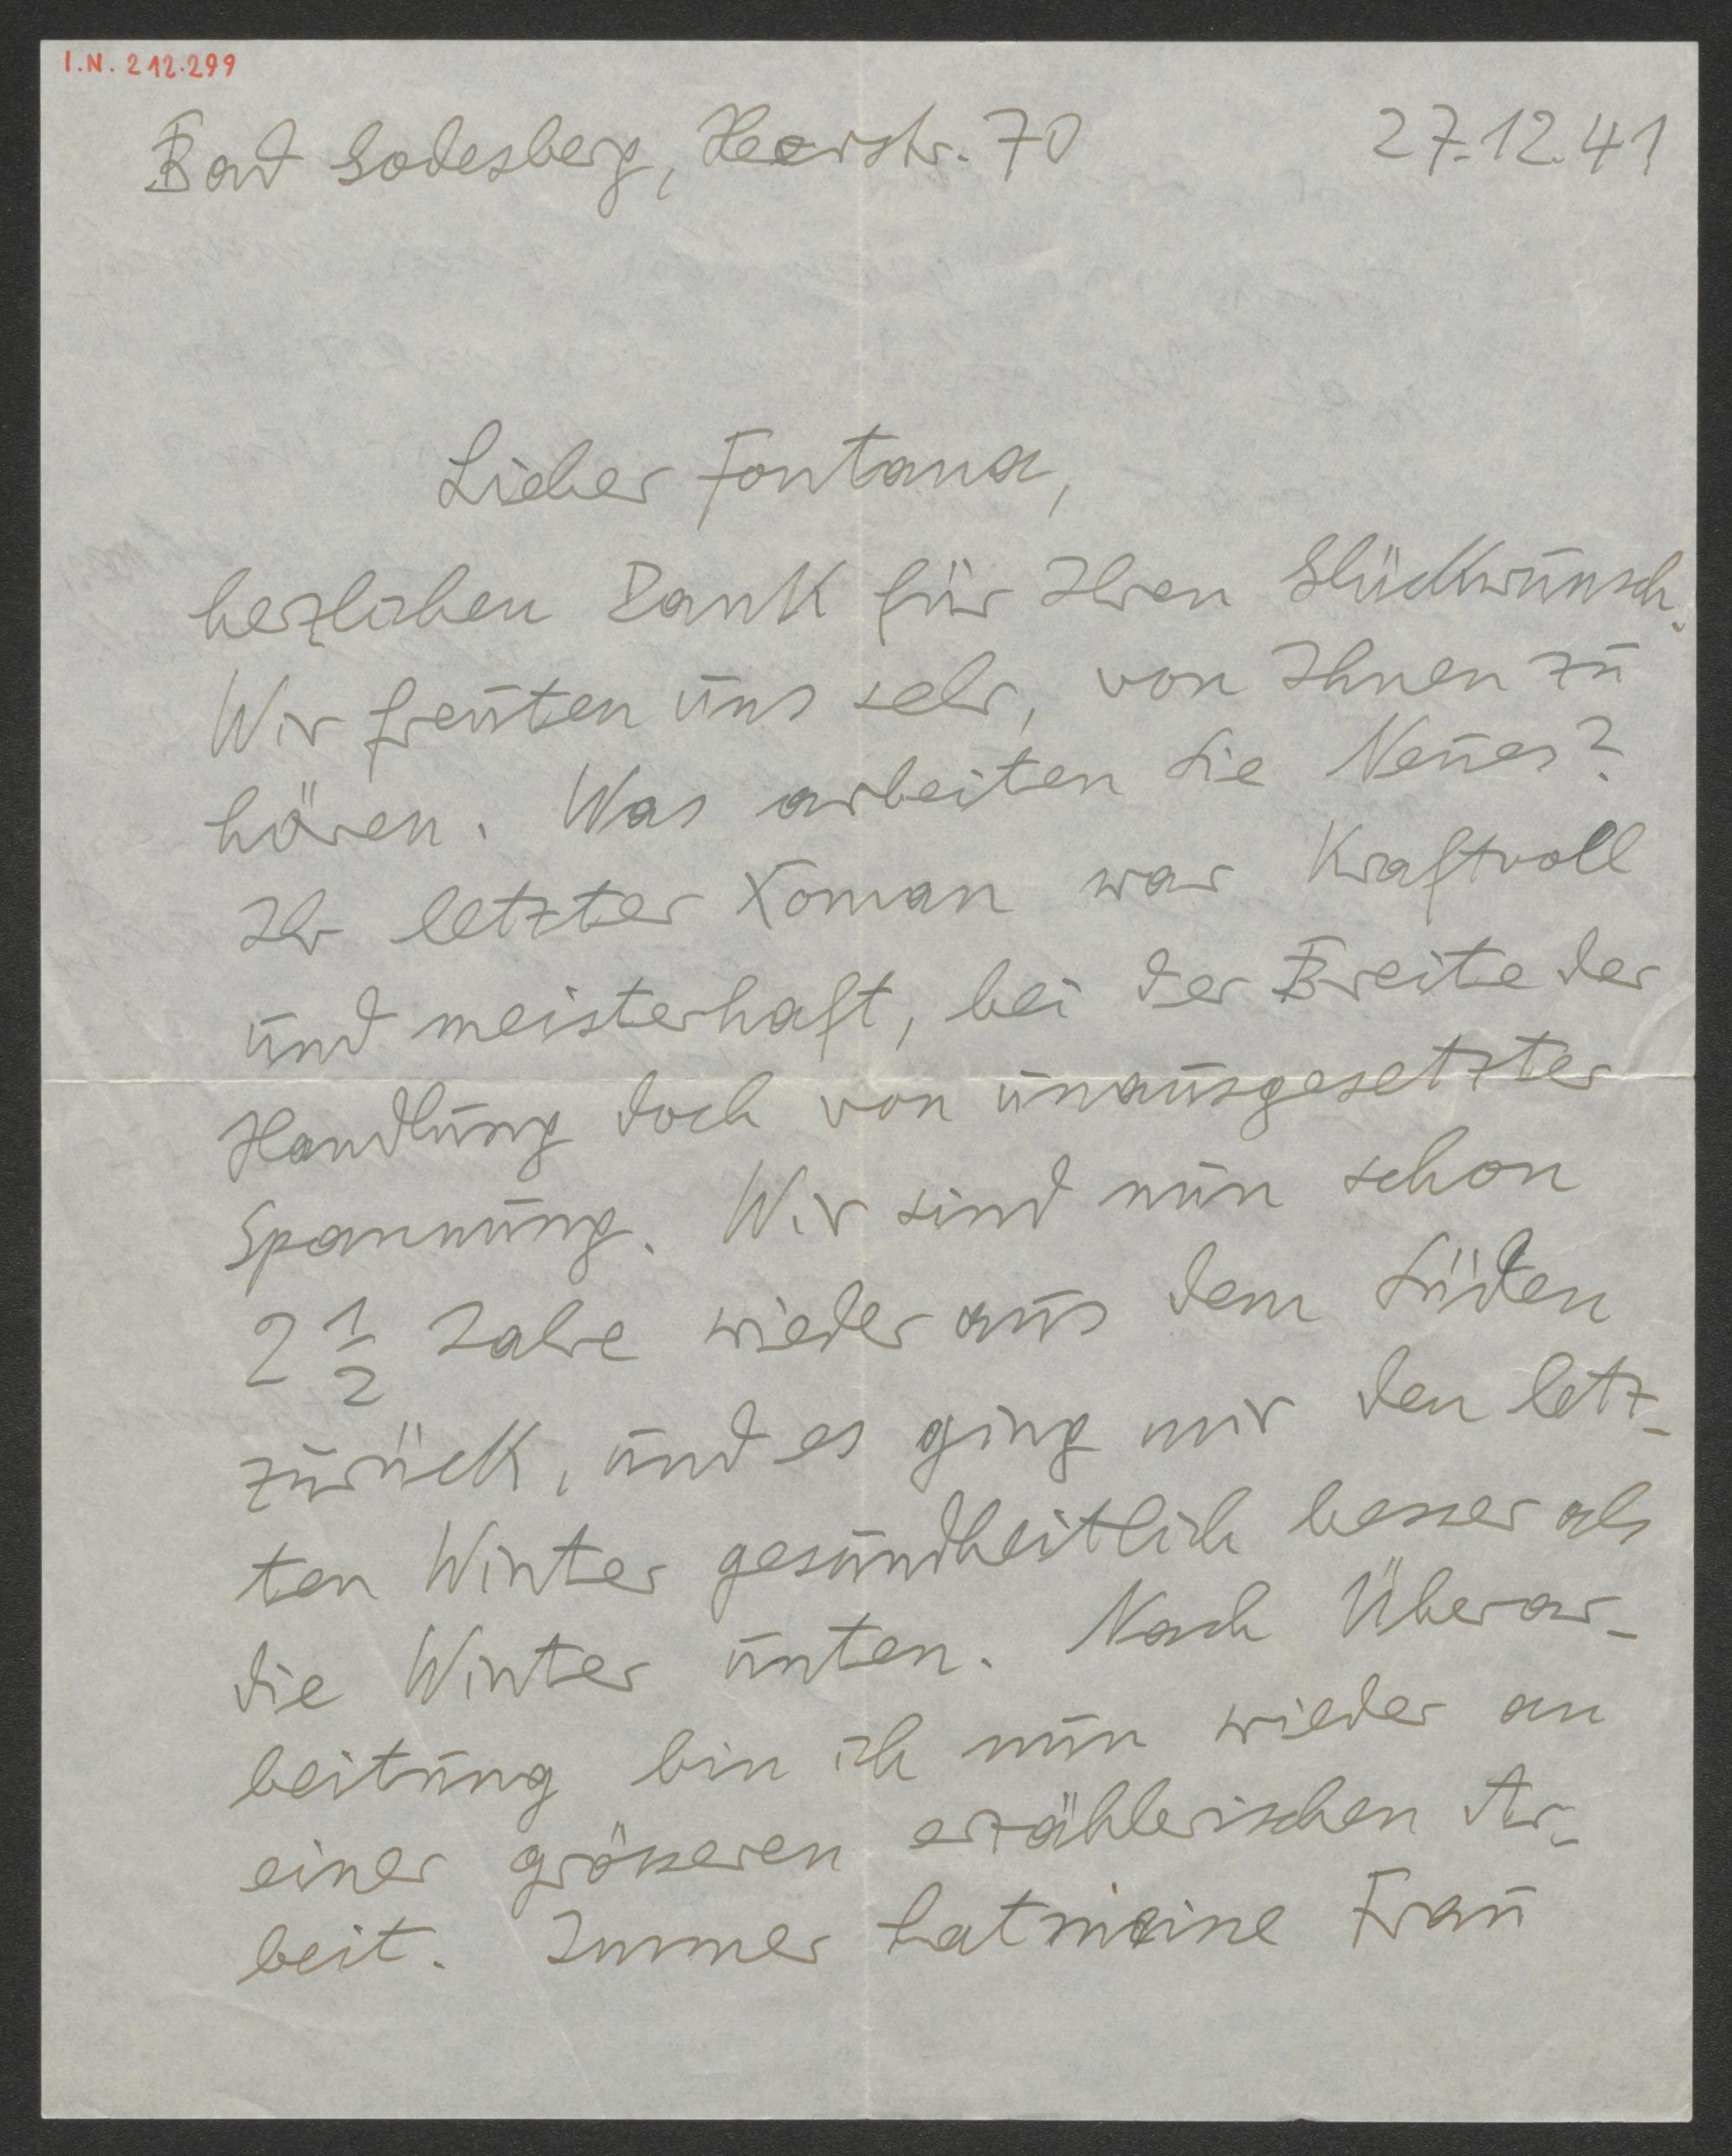 I.N. 212.299
Bad Godesberg, Heerstr. 70
27.12.41
Lieber Fontana,
herzlichen Dank für Ihren Glückwunsch.
Wir freuten uns sehr, von Ihnen zu
hören. Was arbeiten Sie Neues?
Ihr letzter Roman war kraftvoll
und meisterhaft, bei der Breite der
Handlung doch von unausgesetzter
Spannung. Wir sind nun schon
2 1/2 Jahre wieder aus dem Süden
zurück, und es ging mir den letz-
ten Winter gesundheitlich besser als
die Winter unten. Nach Überar-
beitung bin ich nun wieder an
einer grösseren erzählerischen Ar-
beit. Immer hat meine Frau